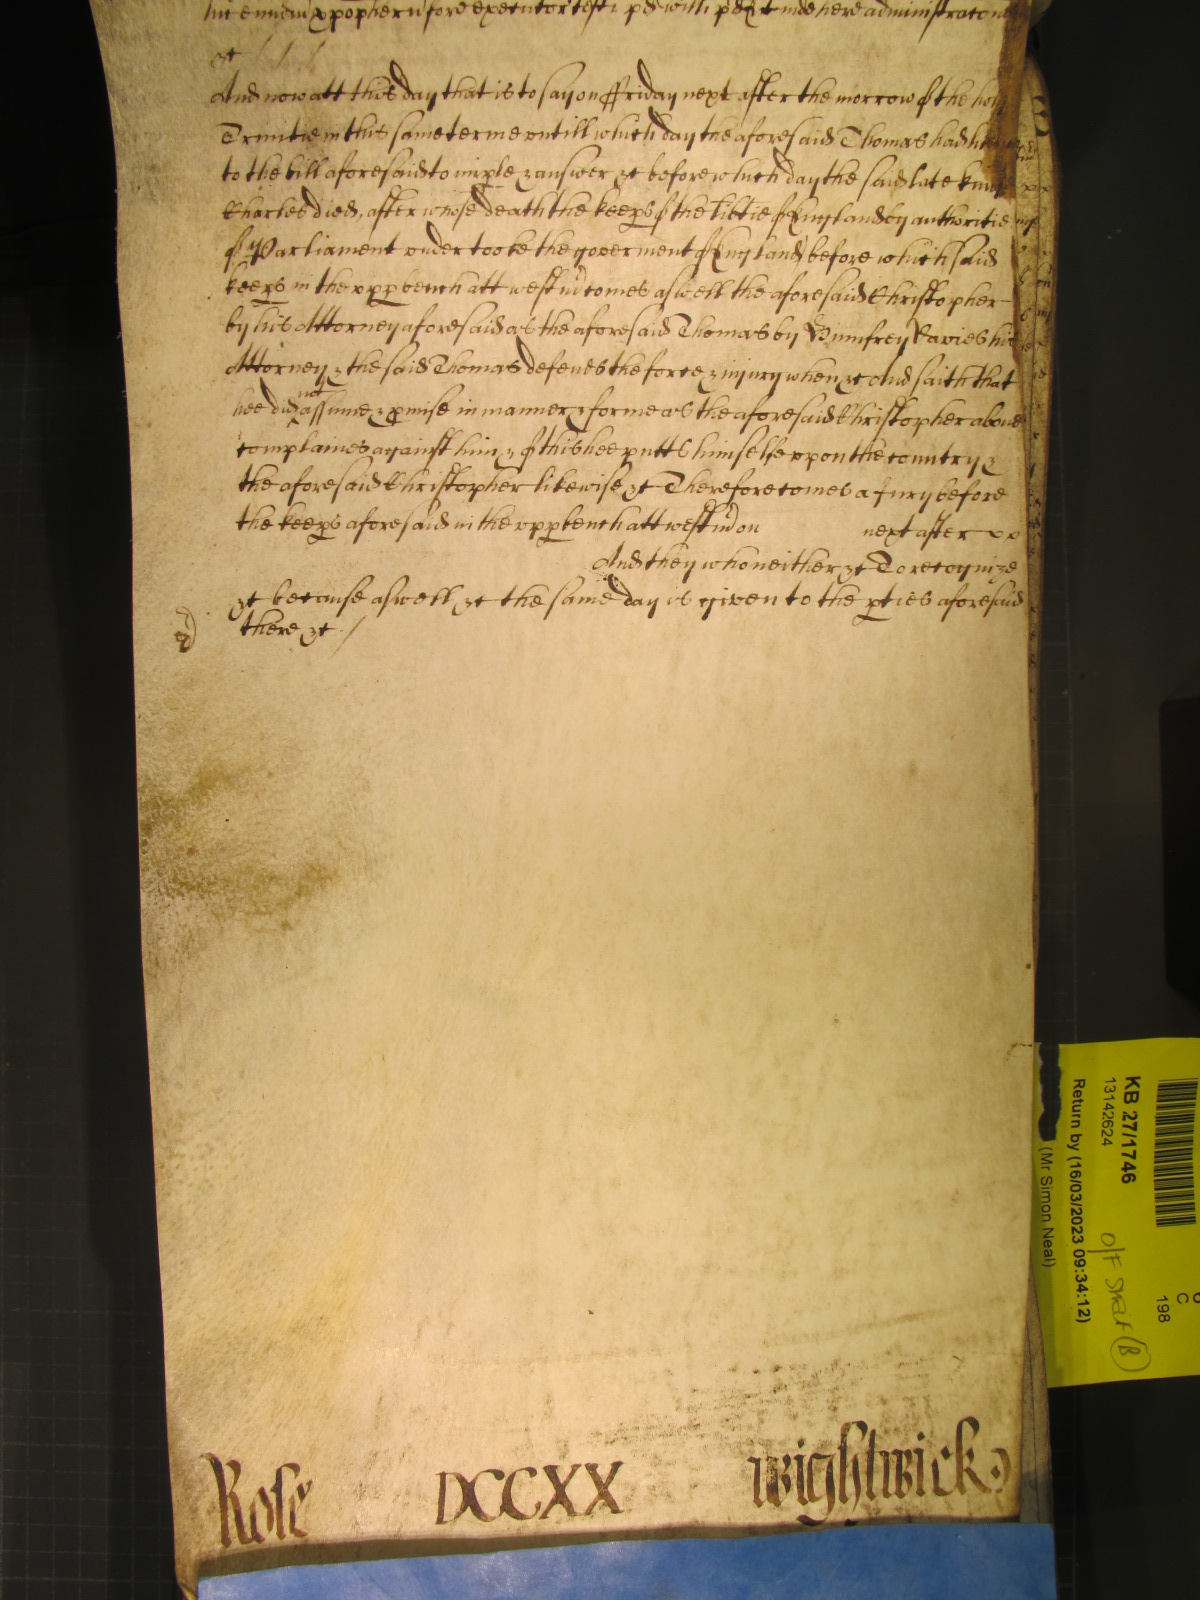 fore executor testi pd with
&c / / /
And now att this day that is to say on ffriday next after the morrow of the holy
Trinitie in this same terme untill which day the aforesaid Thomas had
to the bill aforesaid to imple & answer &c before which day the said late
Charles died, after whose death the keeps of the libtie of England by authoritie
of Parliament under tooke the goverment of England before which said
keeps in the upp bench att westm comes aswell the aforesaid Christopher
by his Attorney aforesaid as the aforesaid Thomas by Humfrey Davies his
Attorney & the said Thomas defends the force & injury when &c And saith that
hee did not assume & pmise in manner & forme as the aforesaid Christopher above
complaines against him & of this hee putts himselfe uppon the country &
the aforesaid Christopher likewise &c Therefore comes a Jury before
the keeps aforesaid in the upp bench att westm on next after
And they who neither &c To recognize
&c because aswell &c the same day is given to the pties aforesaid
there &c /
Rose DCCXX wightwick
KB 27/1746
13142624
Return by (16/03/2023 09:34:12)
(Mr Simon Neal)
O/F Shelf (B)
C
198